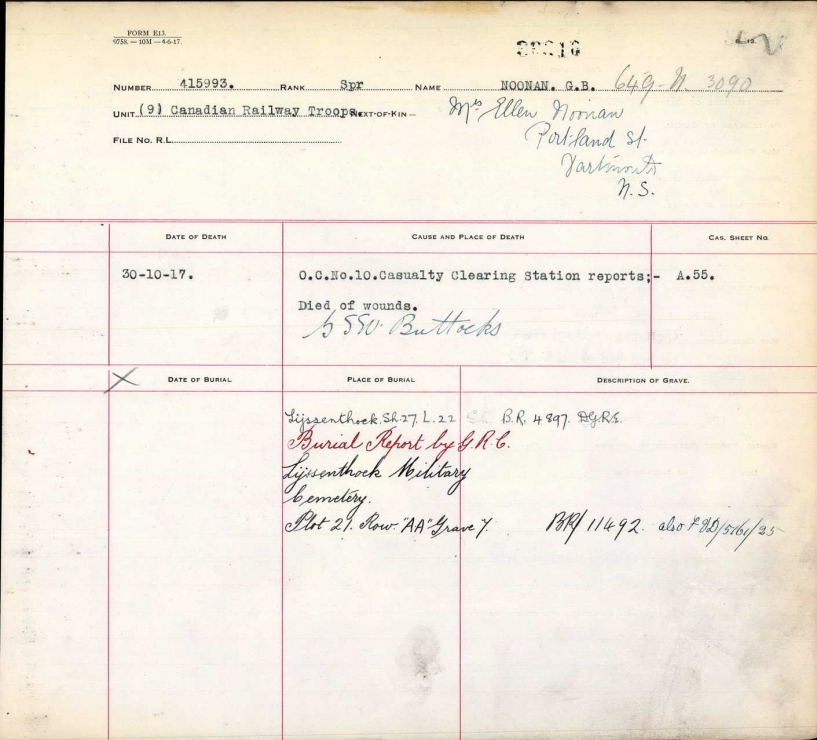 FORM E13.
9758. — 10M — 4-6-17.
NUMBER 415993. RANK Spr NAME NOONAN. G.B. 649-N. 3090
UNIT (9) Canadian Railway Troops. NEXT-OF-KIN — Mrs Ellen Noonan
Portland St.
FILE NO. R.L.
Dartmouth
N.S.
DATE OF DEATH CAUSE AND PLACE OF DEATH CAS. SHEET NO.
30-10-17. O.C.No.10.Casualty Clearing Station reports;- A.55.
Died of wounds.
Buttocks
DATE OF BURIAL PLACE OF BURIAL DESCRIPTION OF GRAVE.
Lijssenthoek. Sh.27. L.22 B.R. 4897. D.G.R.E.
Burial Report by G.R.C.
Lijssenthoek Military
Cemetery.
Plot 21. Row. "AA" Grave 7. BR/11492. also